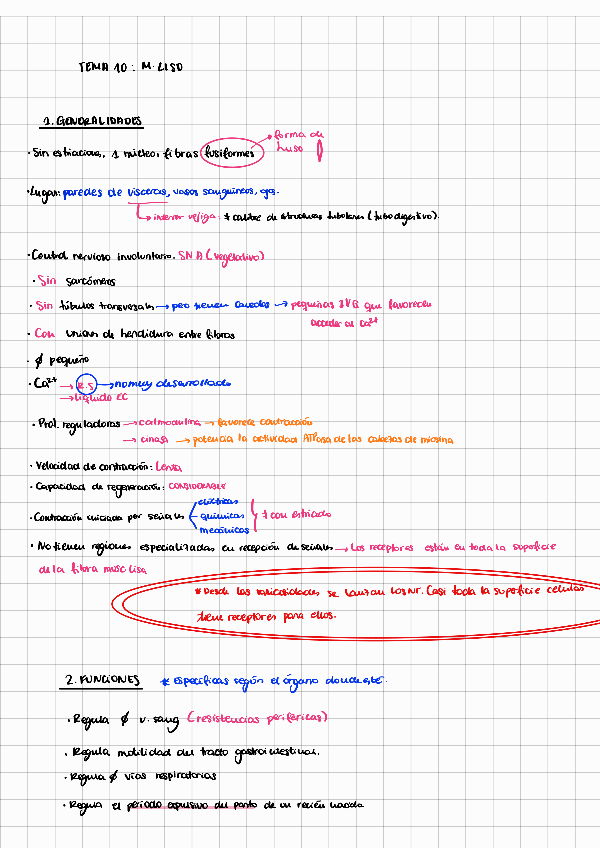 TEMA 10: M. LISO
1. GENERALIDADES
· Sin estriaciones, 1 núcleo: fibras fusiformes → forma de huso
· Lugar: paredes de vísceras, vasos sanguíneos, ojos.
→ interior vejiga: ≠ calibre de estructuras tubulares (tubo digestivo).
· Control nervioso involuntario. SNA (vegetativo)
· Sin sarcómeros
· Sin túbulos transversales → pero tienen caveolas → pequeñas que favorecen
acceder al Ca²⁺
· Con unión de hendidura entre fibras
· ϕ pequeño
· Ca²⁺ → R.S → no muy desarrollado
→ líquido EC
· Prot. reguladoras → calmodulina → favorece contracción
→ cinasa → potencia la actividad ATPasa de las cabezas de miosina
· Velocidad de contracción: Lenta
· Capacidad de regeneración: CONSIDERABLE
· Contracción iniciada por señales eléctricas
químicas ≠ con estriado
mecánicas
· No tienen regiones especializadas en recepción de señales → Los receptores están en toda la superficie
de la fibra musc lisa
* Desde las varicosidades se lanzan los NT. Casi toda la superficie celular
tiene receptores para ellos.
2. FUNCIONES * Específicas según el órgano donde esté.
· Regula ϕ v. sang (resistencias periféricas)
· Regula motilidad del tracto gastrointestinal.
· Regula ϕ vías respiratorias
· Regula el periodo expulsivo del parto de un recién nacido